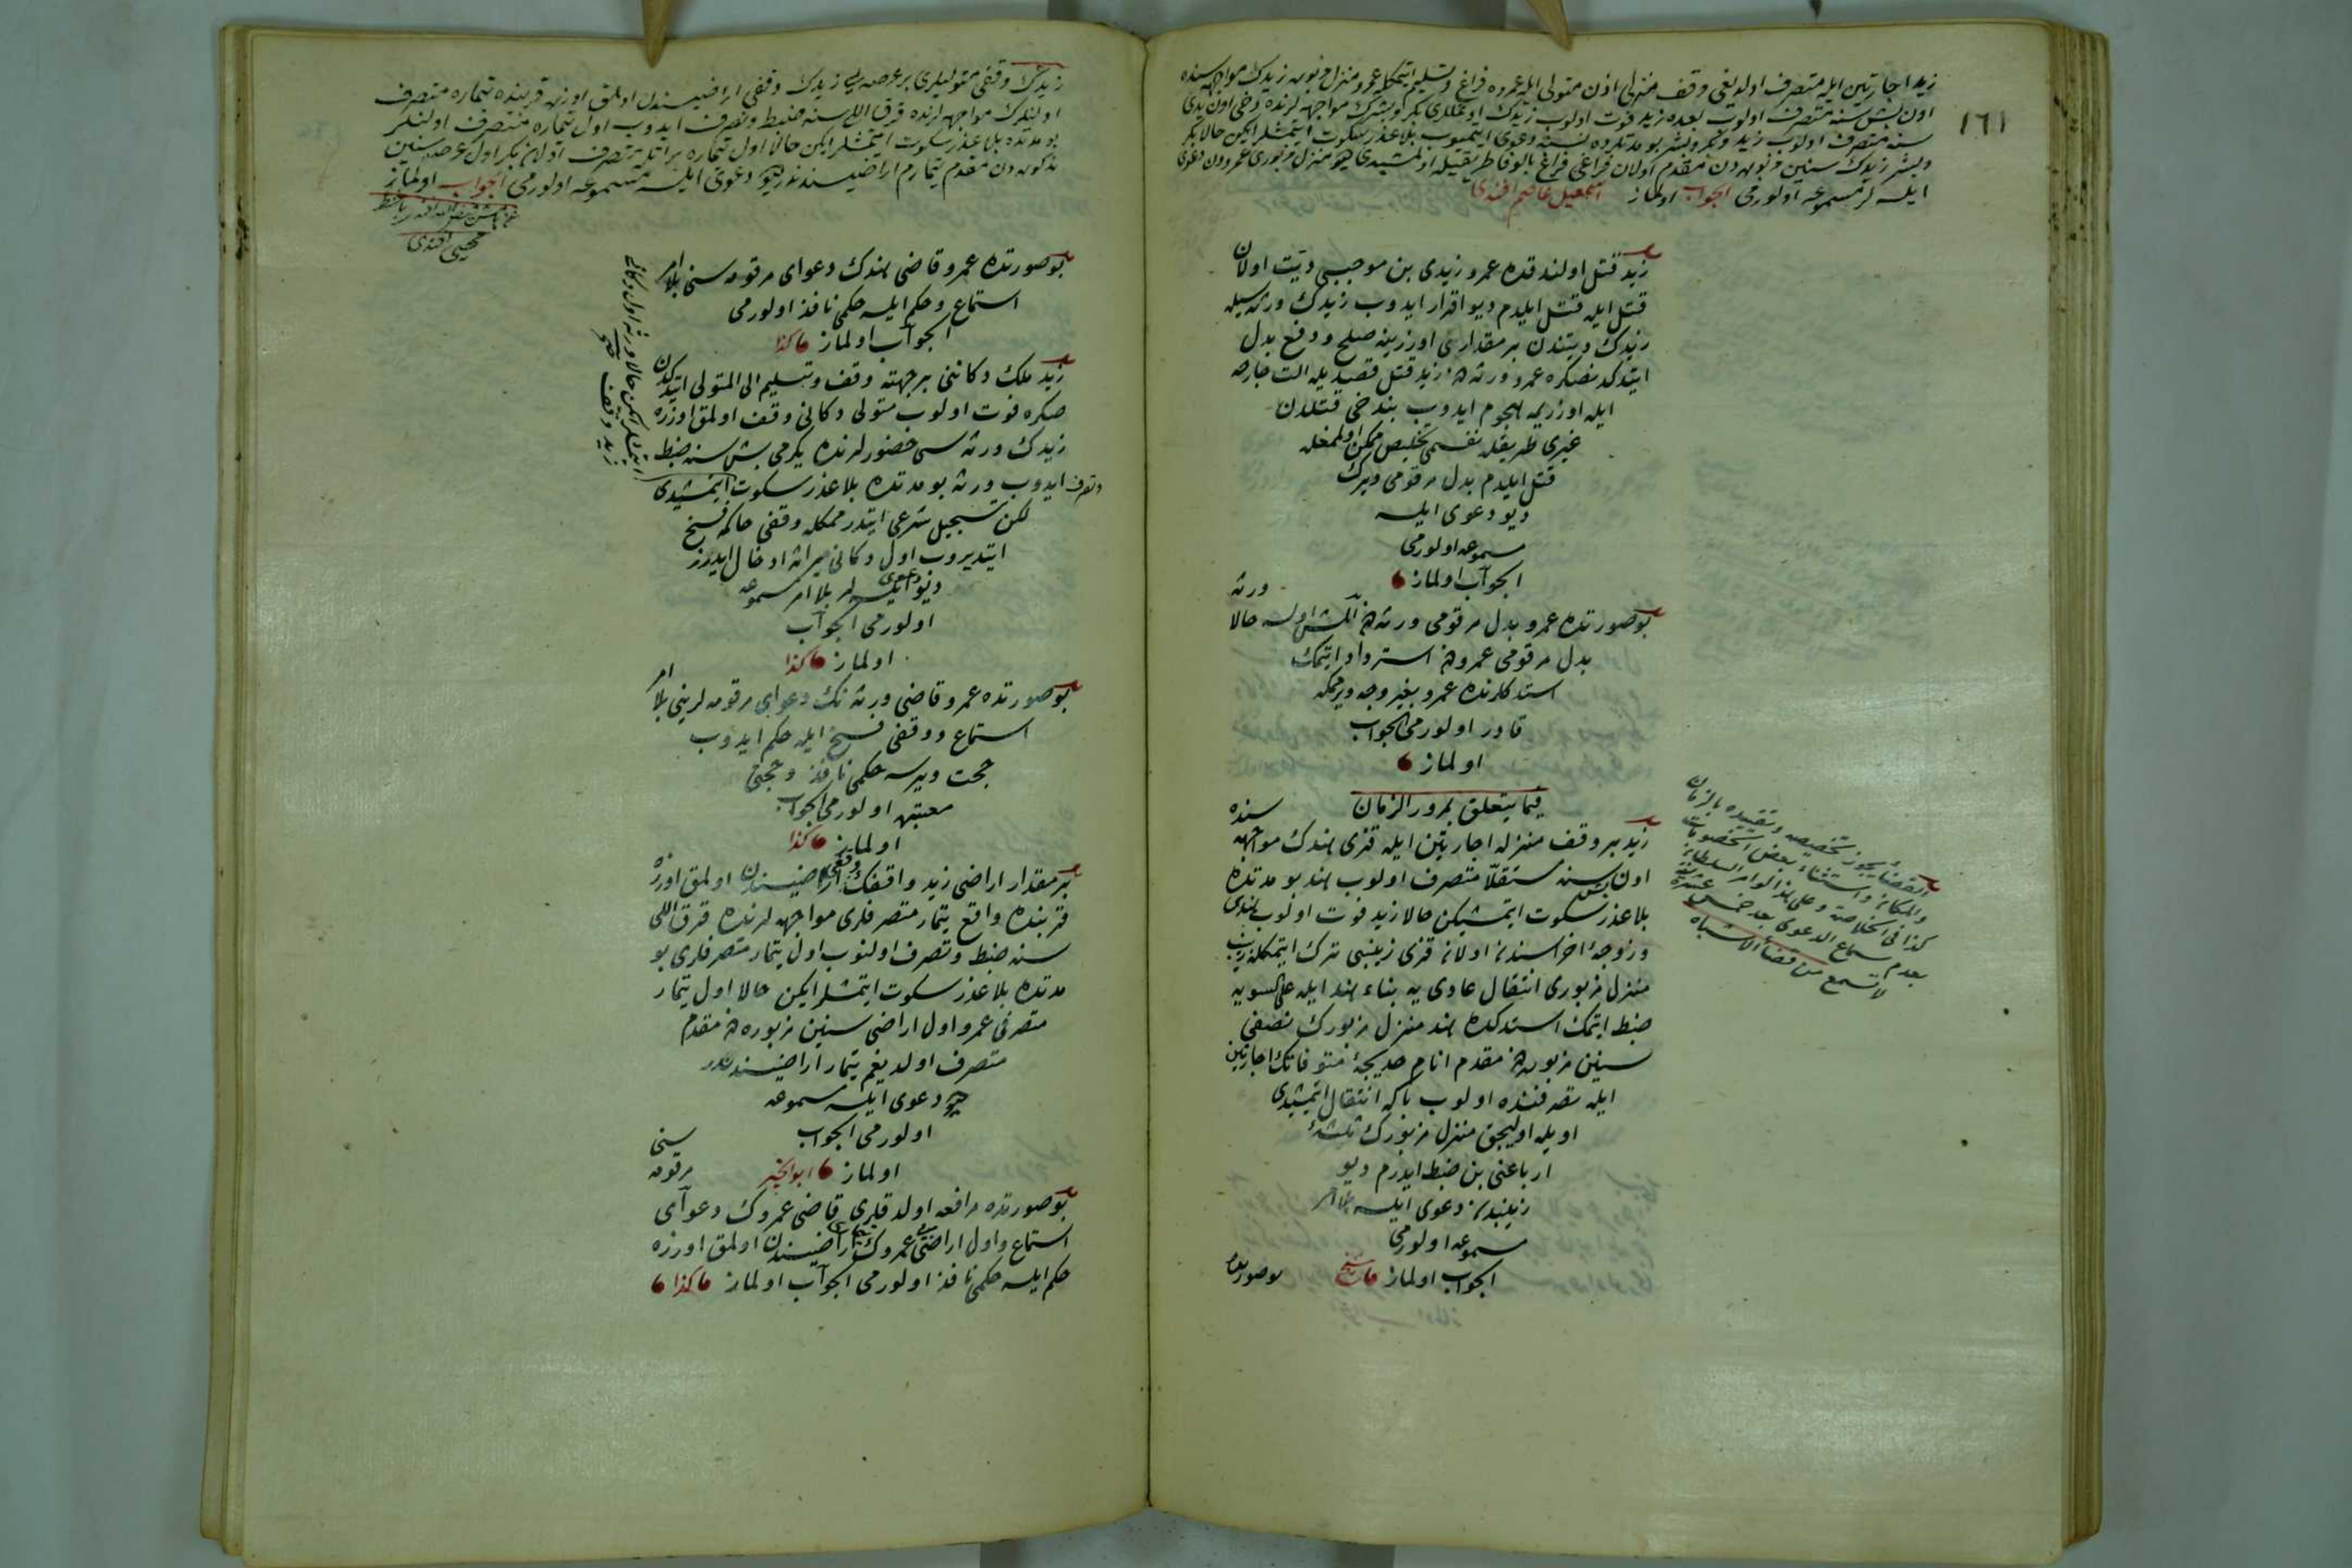 ١٦١
زيد اجارتين ايله متصرف اولديغى وقف منزلى اذن متولى ايله عمروه فراغ و تسليم ايتمكله عمرو منزل مزبوره زيدك مواجهه سنده
اون بش سنه متصرف اولوب بعده زيد فوت اولوب زيدك اوغللرى بكر و بشرك مواجهه لرنده دخى اون يدى
سنه متصرف اولوب زيد و بكر و بشر بو مدتلرده نسنه دعوى ايتميوب بلا عذر سكوت ايتمشلر ايكن حالا بكر
و بشر زيدك سنين مزبوره دن مقدم اولان فراغى فراغ بالوفا طريقيله اولمشيدى ديو منزل مزبورى عمرودن دعوى
ايلسه لر مسموعه اولورمى الجواب اولماز اسمعيل عاصم افندى
زيد قتل اولندقده عمرو زيدى بن موجبى ديت اولان
قتل ايله قتل ايلدم ديو اقرار ايدوب زيدك ورثه سيله
زيدك ديتندن بر مقدارى اوزرينه صلح و دفع بدل
ايتدكدنصكره عمرو ورثه دن زيد قتل قصديله الت جارحه
ايله اوزريمه هجوم ايدوب بندخى قتلدن
غيرى طريقله نفسمى تخليص ممكن اولمغله
قتل ايلدم بدل مرقومى ويرك
ديو دعوى ايلسه
مسموعه اولورمى
الجواب اولماز
ورثه
بو صورتده عمرو بدل مرقومى ورثه دن المش اولسه حالا
بدل مرقومى عمرودن استرداد ايتمك
استدكلرنده عمرو بغير وجه ويرممكه
قادر اولورمى الجواب
اولماز
فيما يتعلق بمرور الزمان
زيد بر وقف منزله اجارتين ايله قزى هندك مواجهه
سنده
اون بش سنه مستقلاً متصرف اولوب هند بو مدتده
بلا عذر سكوت ايتمشيكن حالا زيد فوت اولوب هندى
و زوجهٔ اخراسندن اولان قزى زينبى ترك ايتمكله زينب
منزل مزبورى انتقال عادى يه بناء هند ايله على السويه
ضبط ايتمك استدكده هند منزل مزبورك نصفى
سنين مزبوره دن مقدم انام خديجهٔ متوفاتك اجارتين
ايله تصرفنده اولوب باكه انتقال ايتمشيدى
اويله اوليجق منزل مزبورك ثلثهٔ
ارباعنى بن ضبط ايدرم ديو
زينبدن دعوى ايلسه بلا امر
مسموعه اولورمى
الجواب اولماز
بو صورتده
القضاء يجوز تخصيصه و تقييده بالزمان
والمكان و استثناء بعض الخصومات
كذا فى الخلاصة و على هذا لو امر السلطان
بعدم سماع الدعوى بعد خمس عشرة سنة
لا تسمع من قضاء الاشباه
زيدك وقفى متوليلرى بر عرصه يى زيدك وقفى اراضيسندن اولمق اوزره قربنده تيماره متصرف
اولنلرك مواجهه لرنده قرق اللى سنه ضبط و تصرف ايدوب اول تيماره متصرف اولنلر
بو مدتده بلا عذر سكوت ايتمشلر ايكن حالا اول تيماره براتله متصرف اولان بكر اول عرصه سنين
مذكوره دن مقدم تيمارم اراضيسندندر ديو دعوى ايلسه مسموعه اولورمى الجواب اولماز
محيى افندى
بو صورتده عمرو قاضى هندك دعواى مرقومه سنى بلا امر
استماع و حكم ايلسه حكمى نافذ اولورمى
الجواب اولماز كذا
زيد ملك دكاننى بر جهته وقف و تسليم الى المتولى ايتدكدن
صكره فوت اولوب متولى دكانى وقف اولمق اوزره
زيدك ورثه سى حضورلرنده يكرمى بش سنه ضبط
و تصرف ايدوب ورثه بو مدتده بلا عذر سكوت ايتمشيدى
لكن تسجيل شرعى ايتدرممكله وقفى حاكمه فسخ
ايتديروب اول دكانى ميراثه ادخال ايدرز
ديو دعوى ايلسه لر بلا امر مسموعه
اولورمى الجواب
اولماز كذا
ايتمشلر ايكن حالا ورثه اول دكانى
زيد وقف
بو صورتده عمرو قاضى ورثه نك دعواى مرقومه لرينى بلا امر
استماع و وقفى فسخ ايله حكم ايدوب
حجت ويرسه حكمى نافذ و حجتى
معتبره اولورمى الجواب
اولماز كذا
بر مقدار اراضى زيد واقفك وقفى اراضيسندن اولمق اوزره
قربنده واقع تيمار متصرفلرى مواجهه لرنده قرق اللى
سنه ضبط و تصرف اولنوب اول تيمار متصرفلرى بو
مدتده بلا عذر سكوت ايتمشلر ايكن حالا اول تيمار
متصرفى عمرو اول اراضى سنين مزبوره دن مقدم
متصرف اولديغم تيمار اراضيسندندر
ديو دعوى ايلسه مسموعه
اولورمى الجواب
اولماز ابو الخير
بو صورتده مرافعه اولدقلرى قاضى عمروك دعواى
مرقومه سنى
استماع و اول اراضى عمروك تيمارى اراضيسندن اولمق اوزره
حكم ايلسه حكمى نافذ اولورمى الجواب اولماز كذا